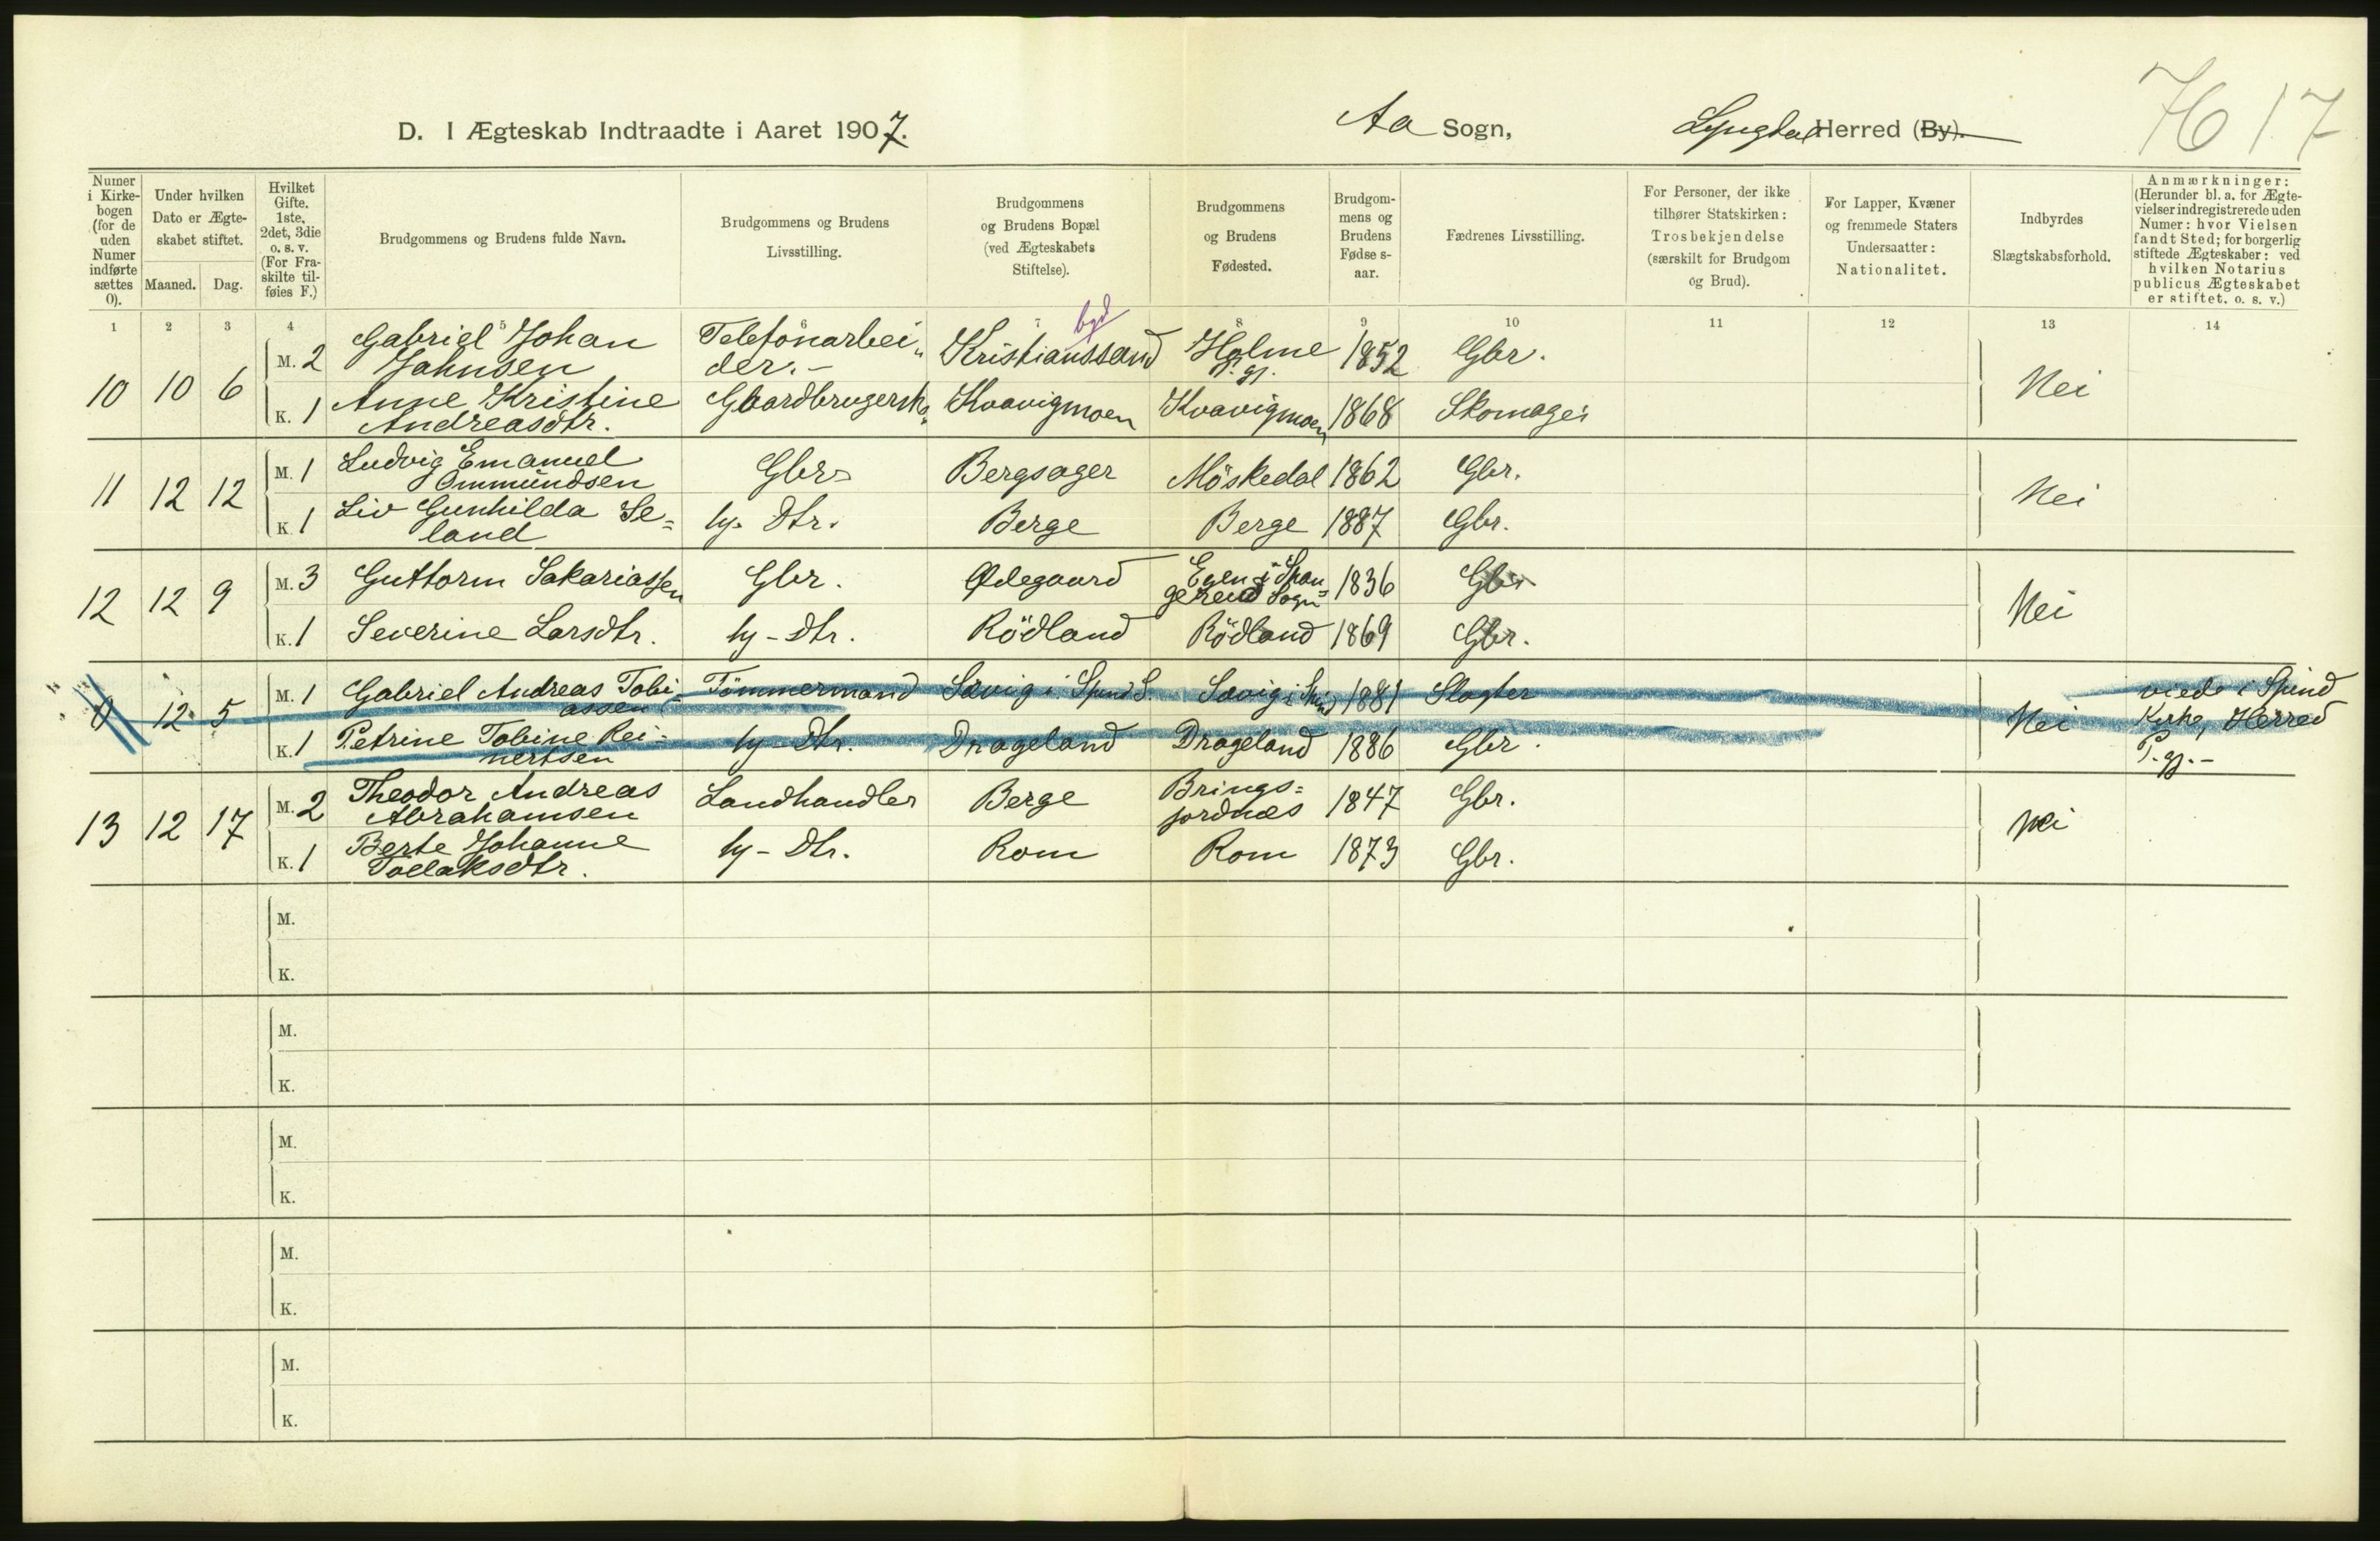 D. I Ægteskab Indtraadte i Aaret 1907. Aa Sogn, Lyngdal Herred (By).
76 17
Numer i Kirke-bogen (for de uden Numer indførte sættes 0).
Under hvilken Dato er Ægte-skabet stiftet.
Maaned. Dag.
Hvilket Gifte. 1ste, 2det, 3die o. s. v. (For Fra-skilte til-føies F.)
Brudgommens og Brudens fulde Navn.
Brudgommens og Brudens Livsstilling.
Brudgommens og Brudens Bopæl (ved Ægteskabets Stiftelse).
Brudgommens og Brudens Fødested.
Brudgom-mens og Brudens Fødse s-aar.
Fædrenes Livsstilling.
For Personer, der ikke tilhører Statskirken: Trosbekjendelse (særskilt for Brudgom og Brud).
For Lapper, Kvæner og fremmede Staters Undersaatter: Nationalitet.
Indbyrdes Slægtskabsforhold.
Anmærkninger: (Herunder bl. a. for Ægte-vielser indregistrerede uden Numer: hvor Vielsen fandt Sted; for borgerlig stiftede Ægteskaber: ved hvilken Notarius publicus Ægteskabet er stiftet. o. s. v.)
1 2 3 4 5 6 7 8 9 10 11 12 13 14
10 10 6 M. 2 Gabriel Johan Jahnsen Telefonarbei„der.- Kristianssand byd Holme P. gj. 1852 Gbr. Nei
K. 1 Anne Kristine Andreasdtr. Gaardbrugersk. Kvavigmoen Kvavigmoen 1868 Skomager
11 12 12 M. 1 Ludvig Emanuel Ommundsen Gbr. Bergsager Möskedal 1862 Gbr. Nei
K. 1 Liv Gunhilda Se=land hj. Dtr. Berge Berge 1887 Gbr.
12 12 9 M. 3 Guttorm Sakariassen Gbr. Ødegaard Egen i Span=gereid Sogn 1836 Gbr. Nei
K. 1 Severine Larsdtr. hj - Dtr. Rödland Rödland 1869 Gbr.
0 12 5 M. 1 Gabriel Andreas Tobi=assen Tömmermand Sævig i Spind S. Sævig i Spind 1881 Slagter Nei viede i Spind Kirke, Herred P. gj. -
K. 1 Petrine Tobine Rei=nertsen hj - Dtr. Drageland Drageland 1886 Gbr.
13 12 17 M. 2 Theodor Andreas Abrahamsen Landhandler Berge Brings=jordnæs 1847 Gbr. Nei
K. 1 Berte Johanne Tollaksdtr. hj - Dtr. Rom Rom 1873 Gbr.
M.
K.
M.
K.
M.
K.
M.
K.
M.
K.